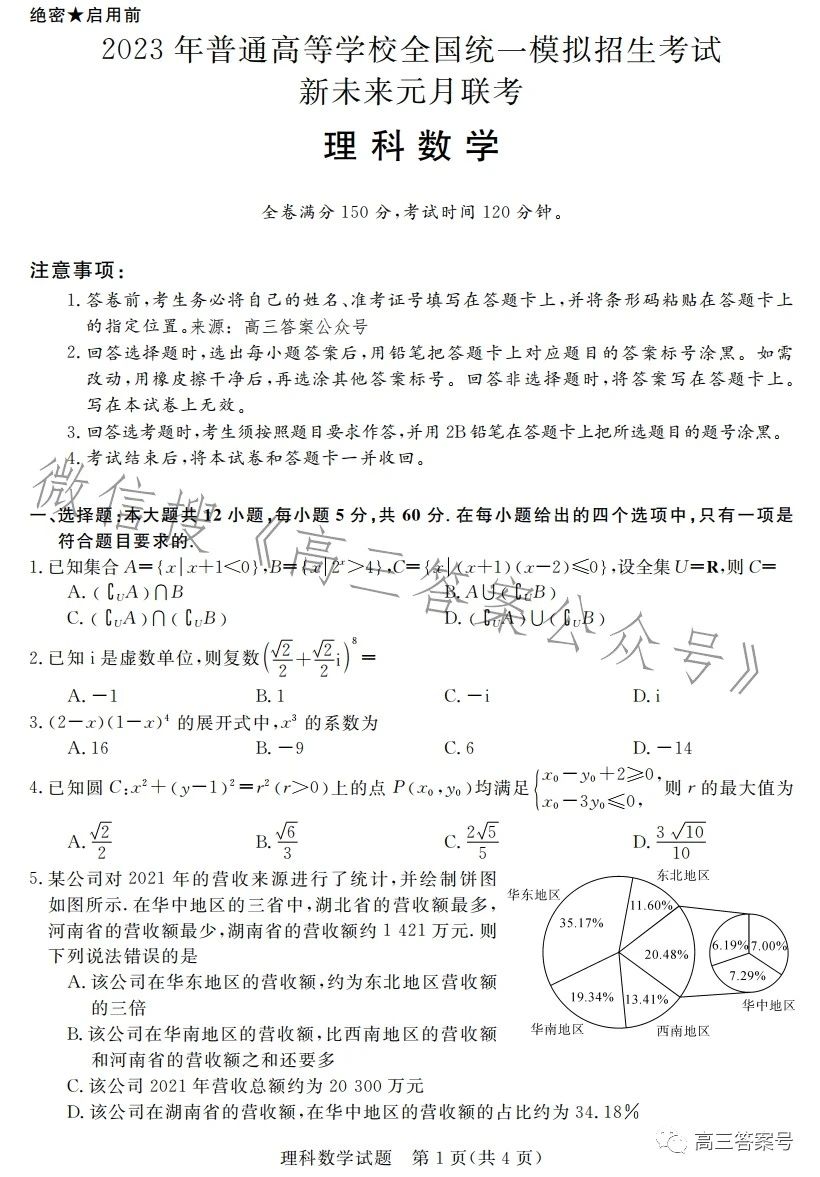 绝密★启用前
2023 年普通高等学校全国统一模拟招生考试
新未来元月联考
理科数学
全卷满分 150 分,考试时间 120 分钟。
注意事项:
1. 答卷前,考生务必将自己的姓名、准考证号填写在答题卡上,并将条形码粘贴在答题卡上
的指定位置。来源: 高三答案公众号
2. 回答选择题时,选出每小题答案后,用铅笔把答题卡上对应题目的答案标号涂黑。如需
改动,用橡皮擦干净后,再选涂其他答案标号。回答非选择题时,将答案写在答题卡上。
写在本试卷上无效。
3. 回答选考题时,考生须按照题目要求作答,并用 2B 铅笔在答题卡上把所选题目的题号涂黑。
4. 考试结束后,将本试卷和答题卡一并收回。
微信搜《高三答案公众号》
一、选择题:本大题共 12 小题,每小题 5 分,共 60 分. 在每小题给出的四个选项中,只有一项是
符合题目要求的.
1. 已知集合 A={x|x+1<0},B={x|2ˣ>4},C={x|(x+1)(x-2)≤0},设全集 U=R,则 C=
A. (∁UA)∩B B. A∪(∁UB)
C. (∁UA)∩(∁UB) D. (∁UA)∪(∁UB)
2. 已知 i 是虚数单位,则复数(√2/2+√2/2i)⁸=
A. -1 B. 1 C. -i D. i
3. (2-x)(1-x)⁴ 的展开式中,x³ 的系数为
A. 16 B. -9 C. 6 D. -14
4. 已知圆 C:x²+(y-1)²=r²(r>0)上的点 P(x₀,y₀)均满足{x₀-y₀+2≥0, x₀-3y₀≤0, 则 r 的最大值为
A. √2/2 B. √6/3 C. 2√5/5 D. 3√10/10
5. 某公司对 2021 年的营收来源进行了统计,并绘制饼图
如图所示. 在华中地区的三省中,湖北省的营收额最多,
河南省的营收额最少,湖南省的营收额约 1 421 万元. 则
下列说法错误的是
A. 该公司在华东地区的营收额,约为东北地区营收额
的三倍
B. 该公司在华南地区的营收额,比西南地区的营收额
和河南省的营收额之和还要多
C. 该公司 2021 年营收总额约为 20 300 万元
D. 该公司在湖南省的营收额,在华中地区的营收额的占比约为 34.18%
东北地区
华东地区
11.60%
35.17%
6.19%
7.00%
20.48%
7.29%
19.34%
13.41%
华中地区
华南地区
西南地区
高三答案号
理科数学试题 第 1 页(共 4 页)